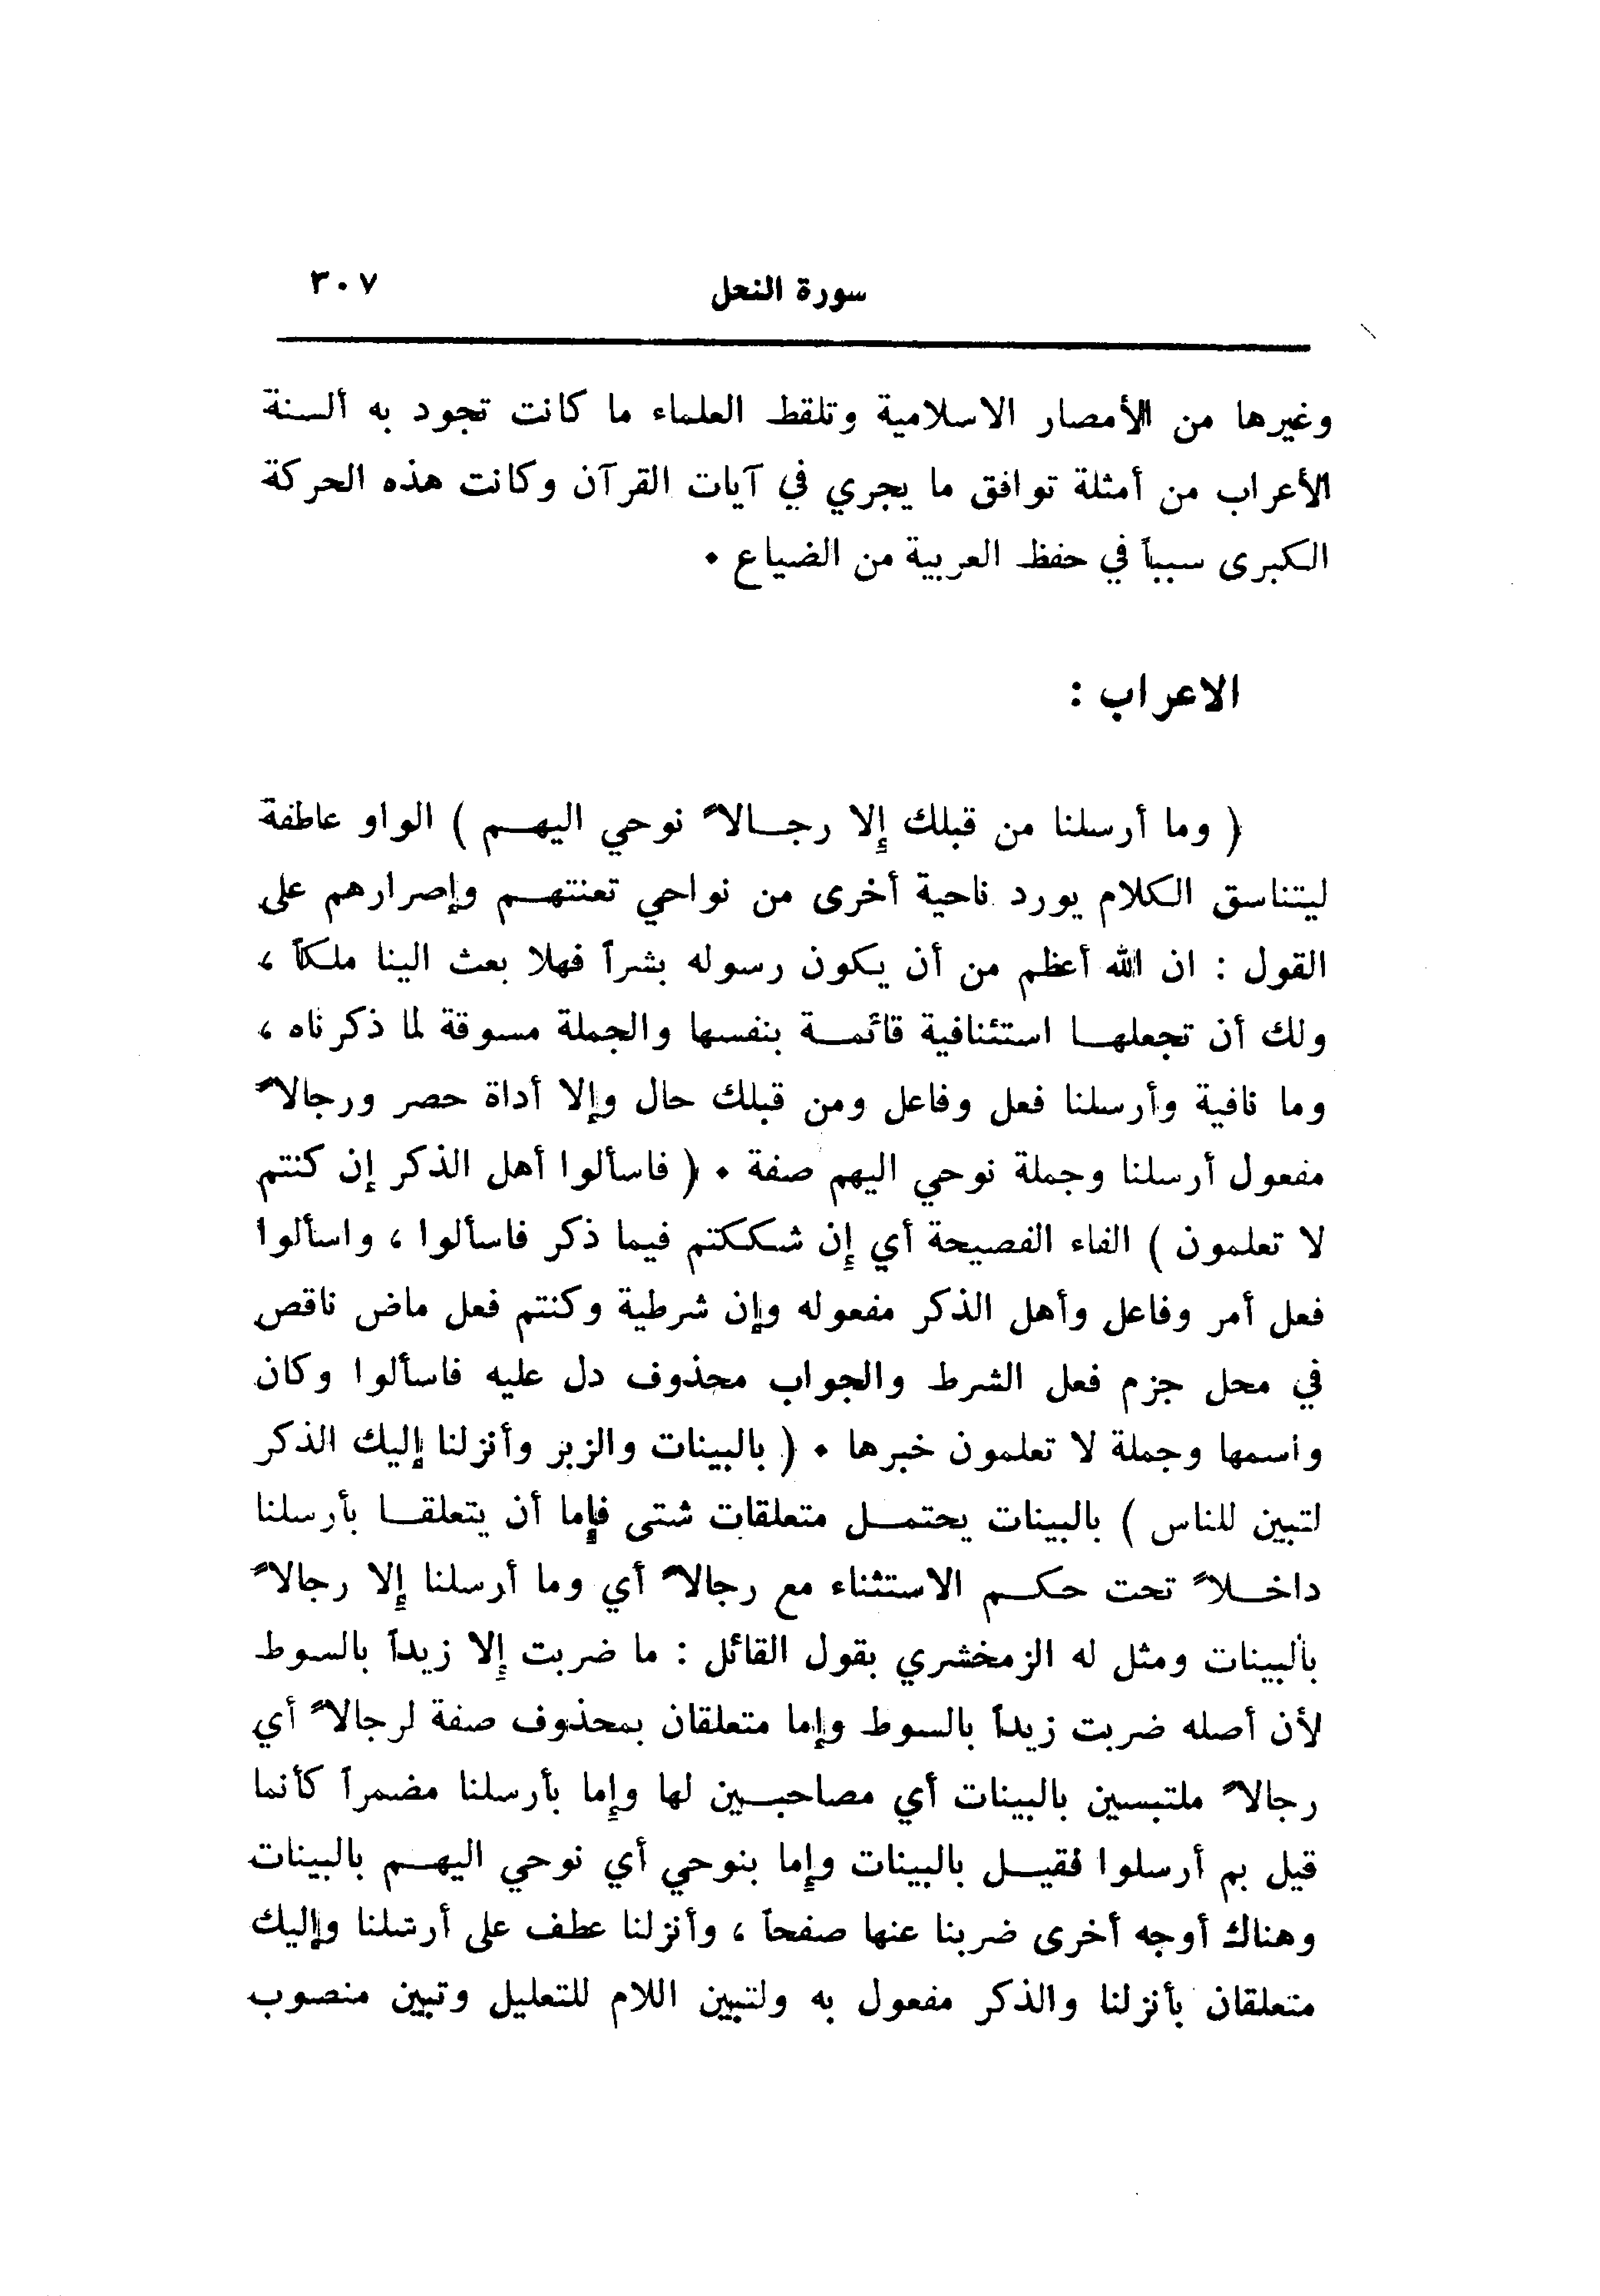 سورة النحل ٣٠٧
وغيرها من الأمصار الاسلامية وتلقط العلماء ما كانت تجود به ألسنة
الأعراب من أمثلة توافق ما يجري في آيات القرآن وكانت هذه الحركة
الكبرى سبباً في حفظ العربية من الضياع ٠
الاعراب :
( وما أرسلنا من قبلك إلا رجالاً نوحي اليهم ) الواو عاطفة
ليتناسق الكلام يورد ناحية أخرى من نواحي تعنتهم وإصرارهم على
القول : ان الله أعظم من أن يكون رسوله بشراً فهلا بعث الينا ملكاً ،
ولك أن تجعلها استئنافية قائمة بنفسها والجملة مسوقة لما ذكرناه ،
وما نافية وأرسلنا فعل وفاعل ومن قبلك حال وإلا أداة حصر ورجالاً
مفعول أرسلنا وجملة نوحي اليهم صفة ٠ ( فاسألوا أهل الذكر إن كنتم
لا تعلمون ) الفاء الفصيحة أي إن شككتم فيما ذكر فاسألوا ، واسألوا
فعل أمر وفاعل وأهل الذكر مفعوله وإن شرطية وكنتم فعل ماض ناقص
في محل جزم فعل الشرط والجواب محذوف دل عليه فاسألوا وكان
واسمها وجملة لا تعلمون خبرها ٠ ( بالبينات والزبر وأنزلنا إليك الذكر
لتبين للناس ) بالبينات يحتمل متعلقات شتى فإما أن يتعلقا بأرسلنا
داخلاً تحت حكم الاستثناء مع رجالاً أي وما أرسلنا إلا رجالاً
بالبينات ومثل له الزمخشري بقول القائل : ما ضربت إلا زيداً بالسوط
لأن أصله ضربت زيداً بالسوط وإما متعلقان بمحذوف صفة لرجالاً أي
رجالاً ملتبسين بالبينات أي مصاحبين لها وإما بأرسلنا مضمراً كأنما
قيل بم أرسلوا فقيل بالبينات وإما بنوحي أي نوحي اليهم بالبينات
وهناك أوجه أخرى ضربنا عنها صفحاً ، وأنزلنا عطف على أرسلنا وإليك
متعلقان بأنزلنا والذكر مفعول به ولتبين اللام للتعليل وتبين منصوب